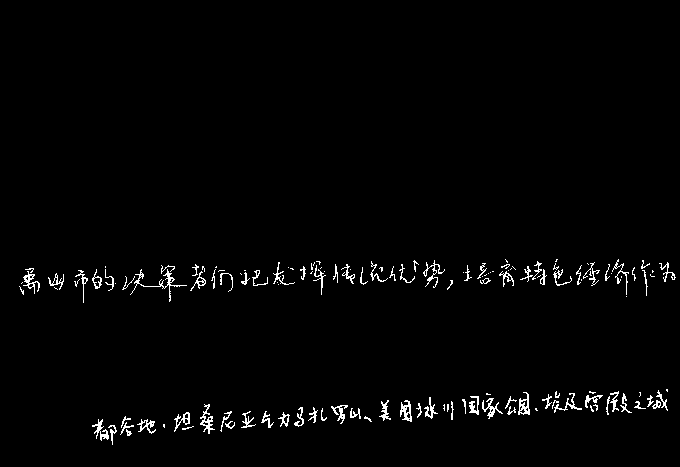 市的决策者们把发挥传统优势,培育特色经济作为
都各地、坦桑尼亚乞力马扎罗山、美国冰川国家公园、埃及宫殿之城